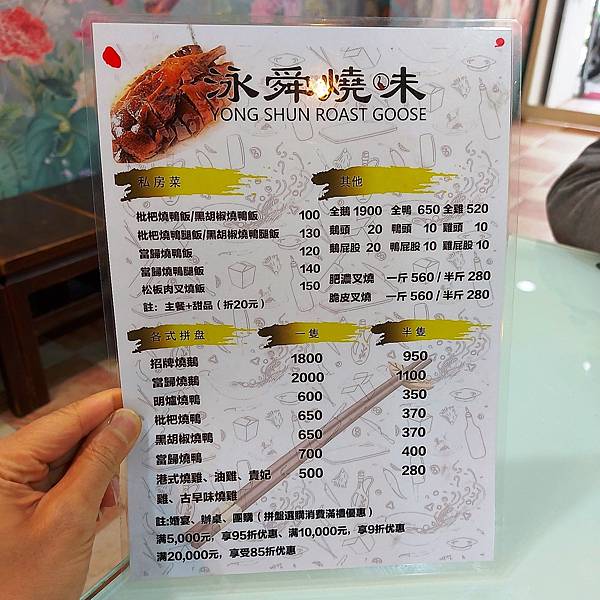 泳舜燒味
YONG SHUN ROAST GOOSE
私房菜
枇杷燒鴨飯/黑胡椒燒鴨飯 100
枇杷燒鴨腿飯/黑胡椒燒鴨腿飯 130
當歸燒鴨飯 120
當歸燒鴨腿飯 140
松板肉叉燒飯 150
註：主餐+甜品（折20元）
其他
全鵝 1900 全鴨 650 全雞 520
鵝頭 20 鴨頭 10 雞頭 10
鵝屁股 20 鴨屁股 10 雞屁股 10
肥濃叉燒 一斤 560 / 半斤 280
脆皮叉燒 一斤 560 / 半斤 280
各式拼盘 一隻 半隻
招牌燒鵝 1800 950
當歸燒鵝 2000 1100
明爐燒鴨 600 350
枇杷燒鴨 650 370
黑胡椒燒鴨 650 370
當歸燒鴨 700 400
港式燒雞、油雞、貴妃 500 280
雞、古早味燒雞
註:婚宴、辦桌、團購（拼盤選購消費滿禮優惠）
满5,000元，享95折优惠、满10,000元，享9折优惠
满20,000元，享受85折优惠